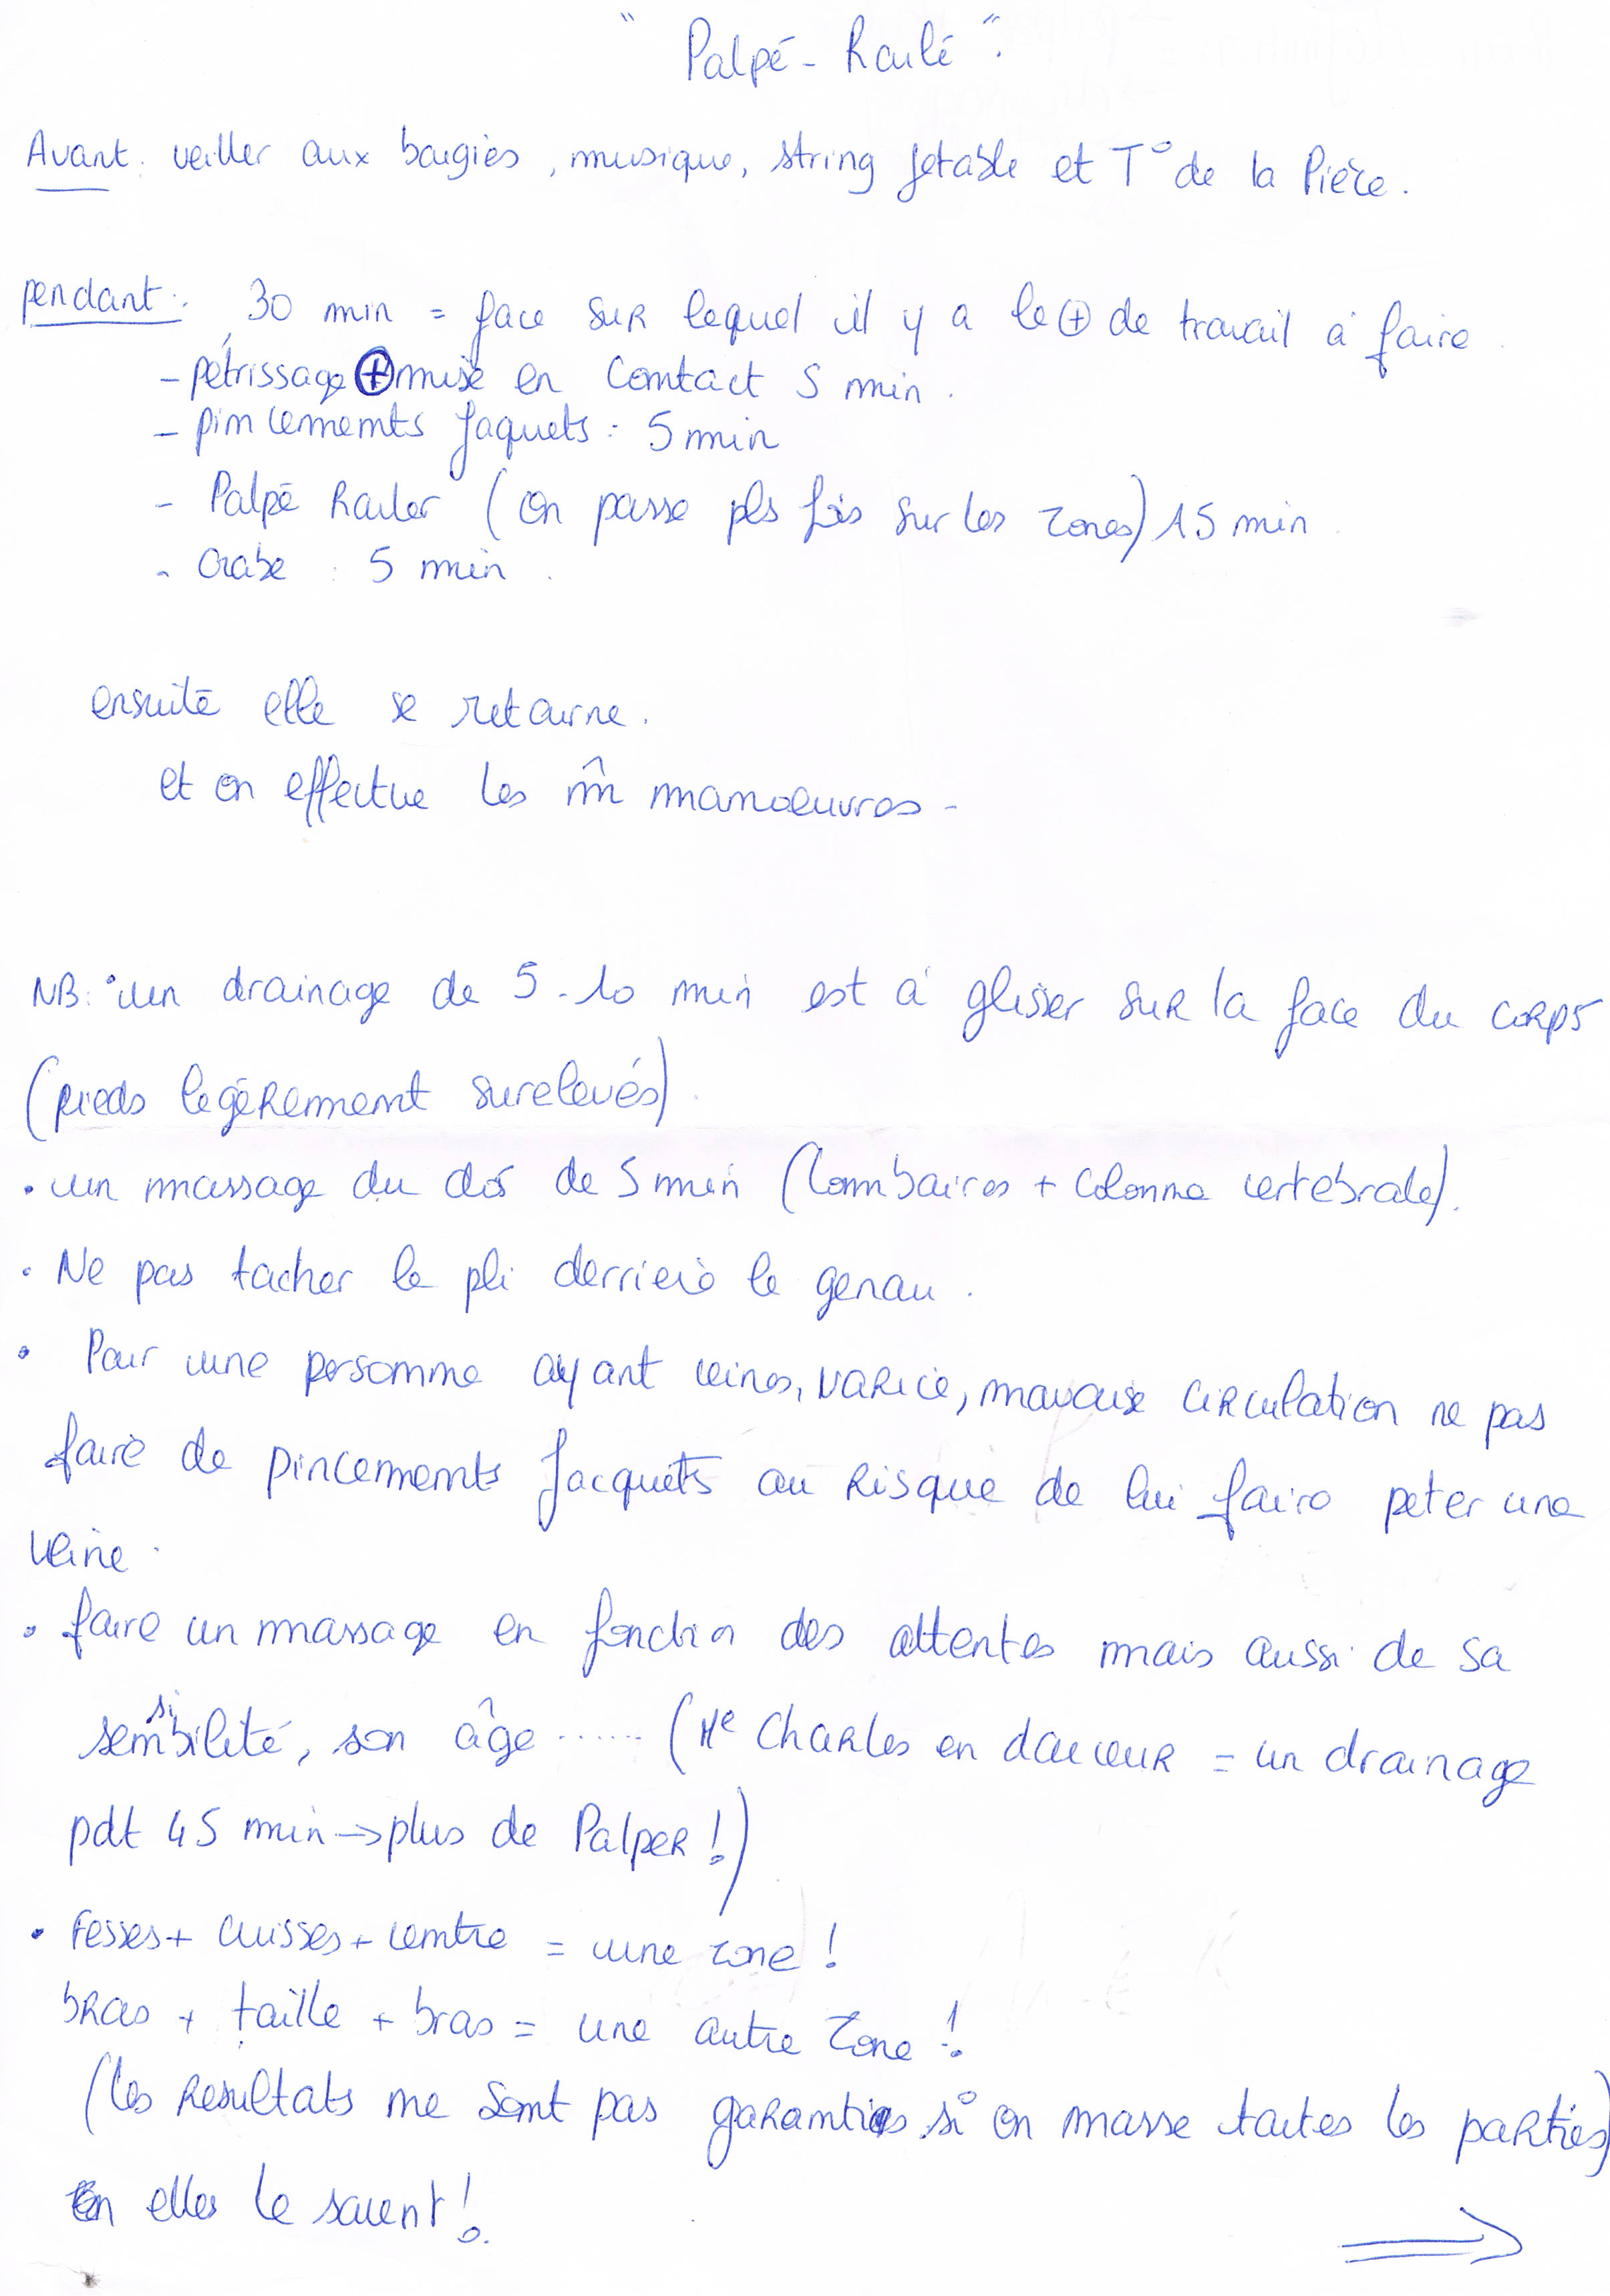 " Palpé - Roulé ".
Avant : veiller aux bougies, musique, string jetable et T° de la Pièce.
pendant : 30 min = face sur lequel il y a le ⊕ de travail à faire.
- pétrissage ⊕ mise en contact 5 min.
- pincements Jaquets : 5 min
- Palpé Rouler (on passe pls fois sur les zones) 15 min.
- crabe : 5 min.
ensuite elle se retourne.
et on effectue les m̂ manoeuvres -
NB : • un drainage de 5 - 10 min est à glisser sur la face du corps
(pieds legèrement surelevés).
• un massage du dos de 5 min (Lombaires + colonne vertebrale).
• Ne pas toucher le pli derrière le genou.
• Pour une personne ayant veines, varice, mavaise circulation ne pas
faire de pincements Jacquets au risque de lui faire peter une
veine.
• faire un massage en fonction des attentes mais aussi de sa
sensibilité, son âge ...... (Me Charles en douceur = un drainage
pdt 45 min → plus de Palper !)
• Fesses + cuisses + ventre = une zone !
bras + taille + bras = une autre zone !
(les resultats ne sont pas garanties si on masse toutes les parties)
en elles le savent !
⇒